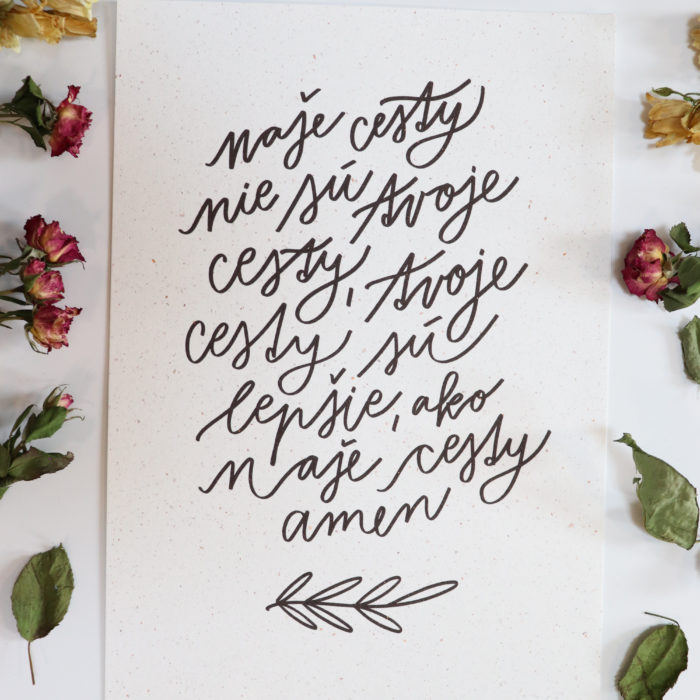 naše cesty
nie sú tvoje
cesty, tvoje
cesty sú
lepšie, ako
naše cesty
amen